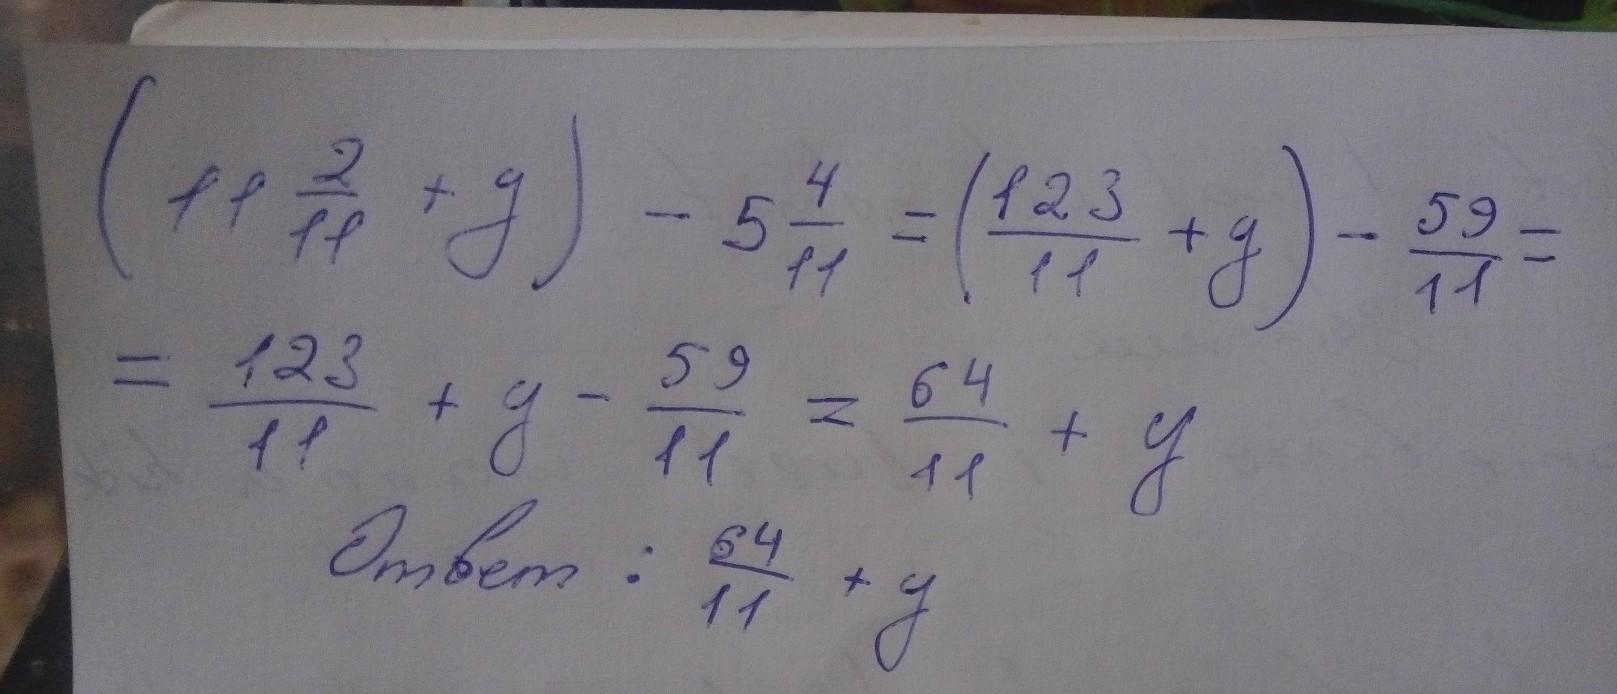 (11 2/11 + y) - 5 4/11 = (123/11 + y) - 59/11 =
= 123/11 + y - 59/11 = 64/11 + y
Ответ : 64/11 + y